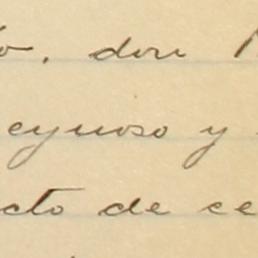 o, don
eynoso y
cto de ce